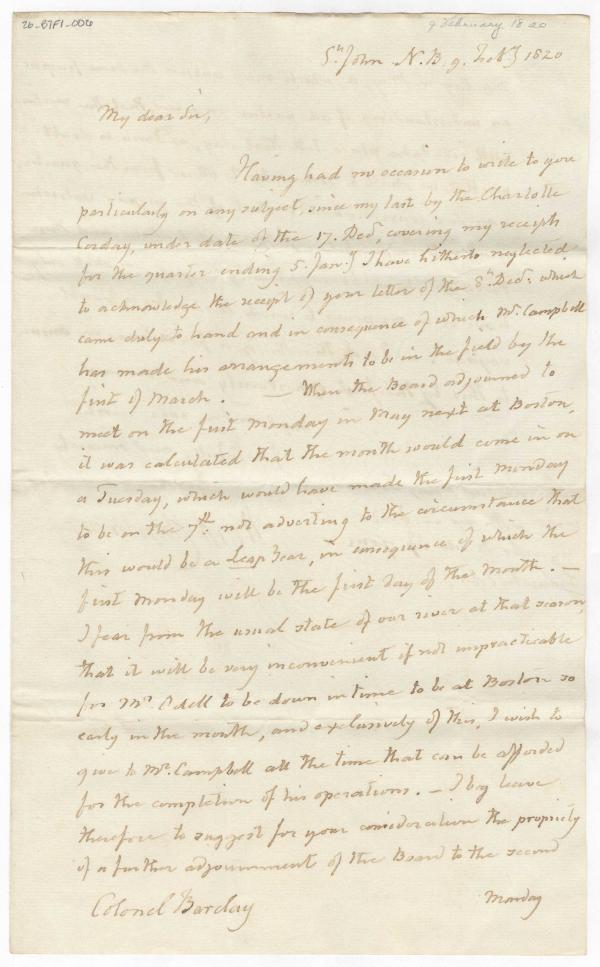 26-B7F1-006
9 February 1820
St. John N.B. 9. Feby 1820
My dear Sir,
Having had no occasion to write to you
particularly on any subject, since my last by the Charlotte
Corday, under date of the 17. Decr, covering my receipts
for the quarter ending 5. Jany I have hitherto neglected
to acknowledge the receipt of your letter of the 8th Decr: which
came duly to hand and in consequence of which Mr. Campbell
has made his arrangements to be in the field by the
first of March. — When the Board adjourned to
meet on the first Monday in May next at Boston,
it was calculated that the month would come in on
a Tuesday, which would have made the first Monday
to be on the 7th. not adverting to the circumstance that
this would be a Leap Year, in consequence of which the
first Monday will be the first day of the Month. —
I fear from the usual state of our river at that season,
that it will be very inconvenient if not impracticable
for Mr Odell to be down in time to be at Boston so
early in the month, and exclusively of this, I wish to
give to Mr. Campbell all the time that can be afforded
for the completion of his operations. — I beg leave
therefore to suggest for your consideration the propriety
of a further adjournment of the Board to the second
Monday
Colonel Barclay